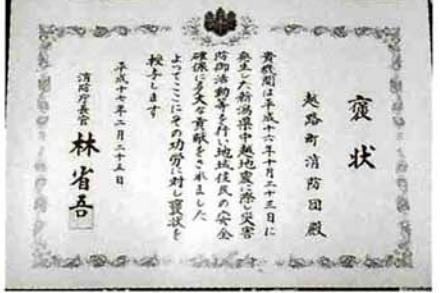 褒状
越路町消防団殿
貴機関は平成十六年十月二十三日に
発生した新潟県中越地震に際し災害
防御活動等を行い地域住民の安全
確保に多大な貢献をされました
よってここにその功労に対し褒状を
授与します
平成十七年二月二十五日
消防庁長官
林省吾